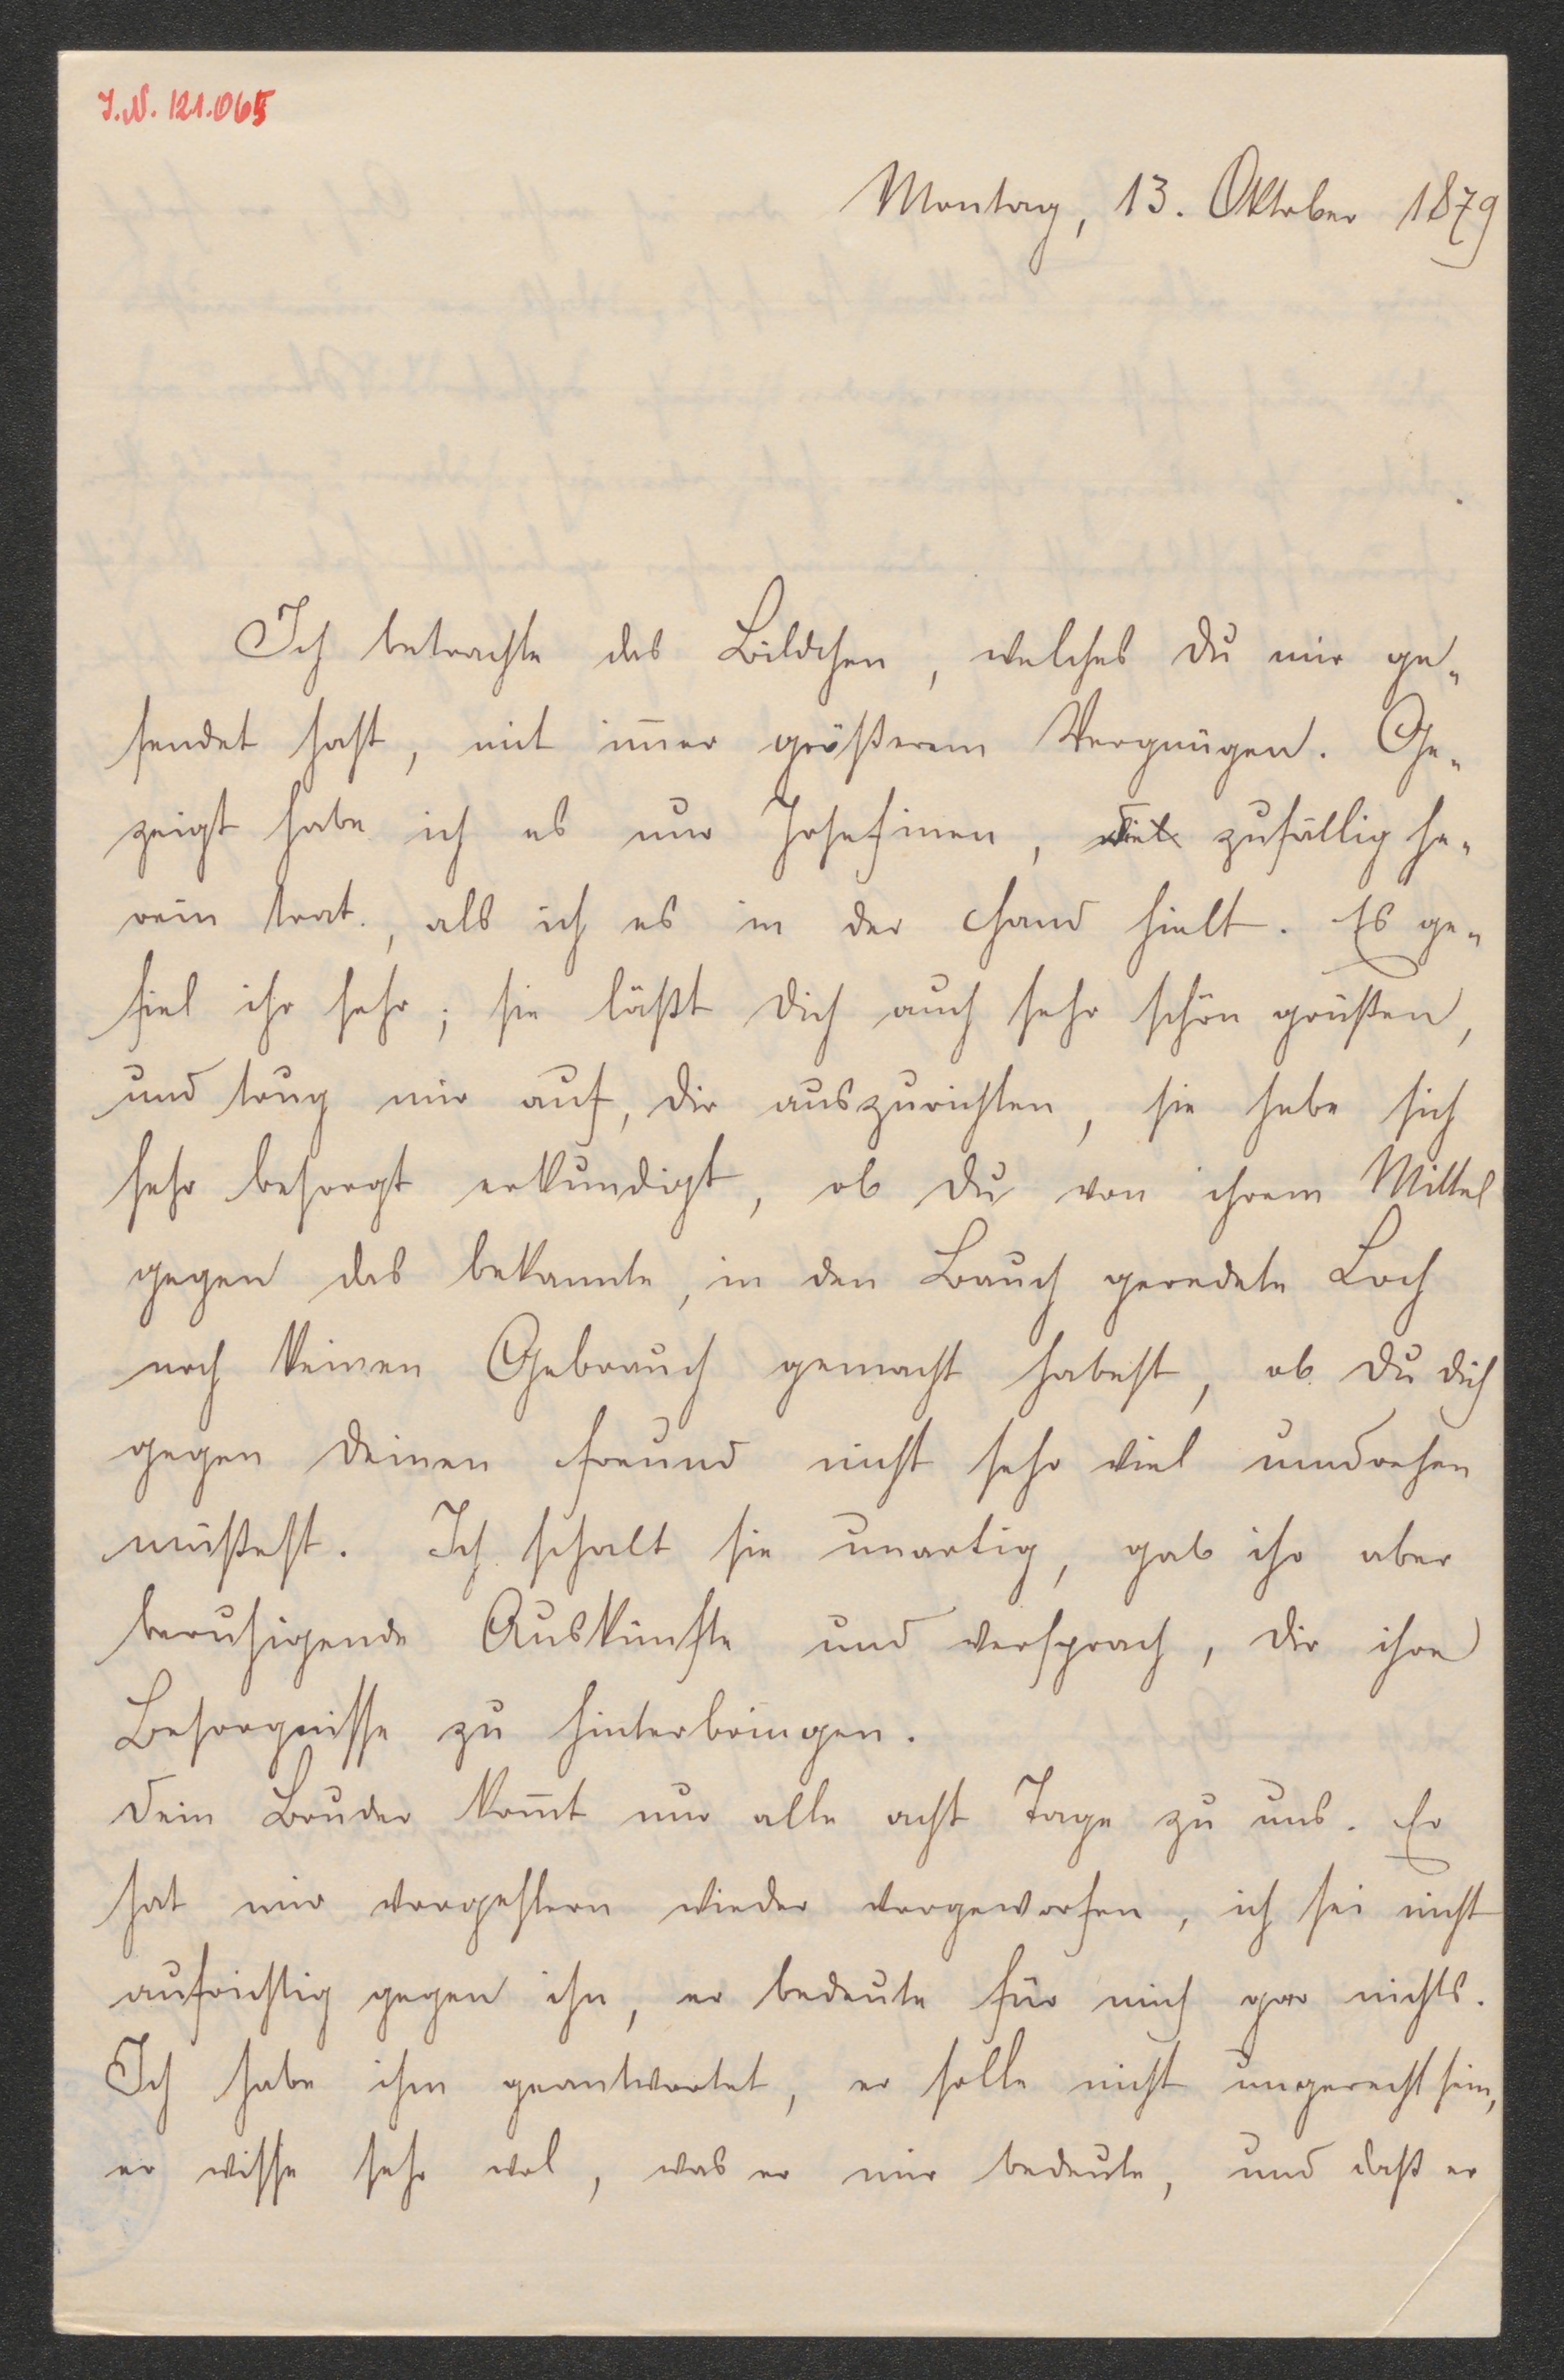 J.N. 121.065
Montag, 13. Oktober 1879
Ich betrachte das Bildchen, welches Du mir ge„
sendet hast, mit im̅er größerem Vergnügen. Ge„
zeigt habe ich es nur Josefinen, die zufällig he„
rein trat, als ich es in der Hand hielt. Es ge„
fiel ihr sehr; sie läßt Dich auch sehr schön grüßen,
und trug mir auf, Dir auszurichten, sie habe sich
sehr besorgt erkundigt, ob Du von ihrem Mittel
gegen das bekannte, in den Bauch geredete Loch
noch keinen Gebrauch gemacht habest, ob Du Dich
gegen Deinen Freund nicht sehr viel umdrehen
müßest. Ich schalt sie unartig, gab ihr aber
beruhigende Auskünfte und versprach, Dir ihre
Besorgnisse zu hinterbringen.
Dein Bruder kom̅t nur alle acht Tage zu uns. Er
hat mir vorgestern wieder vorgeworfen, ich sei nicht
aufrichtig gegen ihn, er bedeute für mich gar nichts.
Ich habe ihm geantwortet, er solle nicht ungerecht sein,
er wisse sehr wol, was er mir bedeute, und daß er